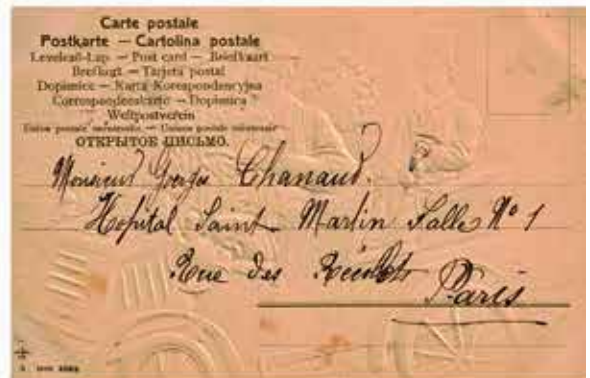 Carte postale
Postkarte — Cartolina postale
Levelező-Lap — Post card — Briefkaart
Brefkort — Tarjeta postal
Dopisnice — Karta Korespondencyjna
Correspondenzkarte — Dopisnica
Weltpostverein
Union postale universelle. — Unione postale universale
ОТКРЫТОЕ ПИСЬМО.
Monsieur Georges Chanaud.
Hopital Saint Martin Salle No 1
Rue des Récolets
Paris